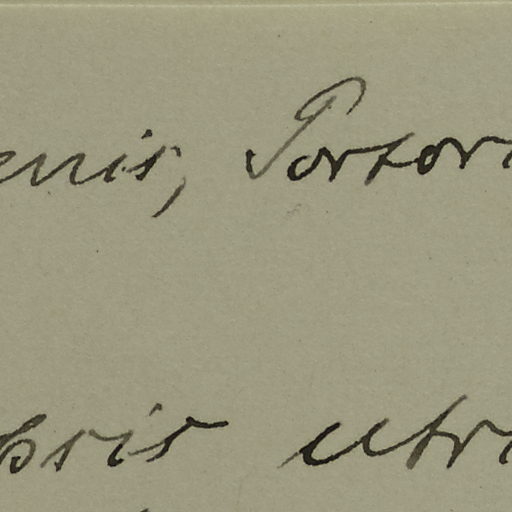 enis, Portori
bris utri